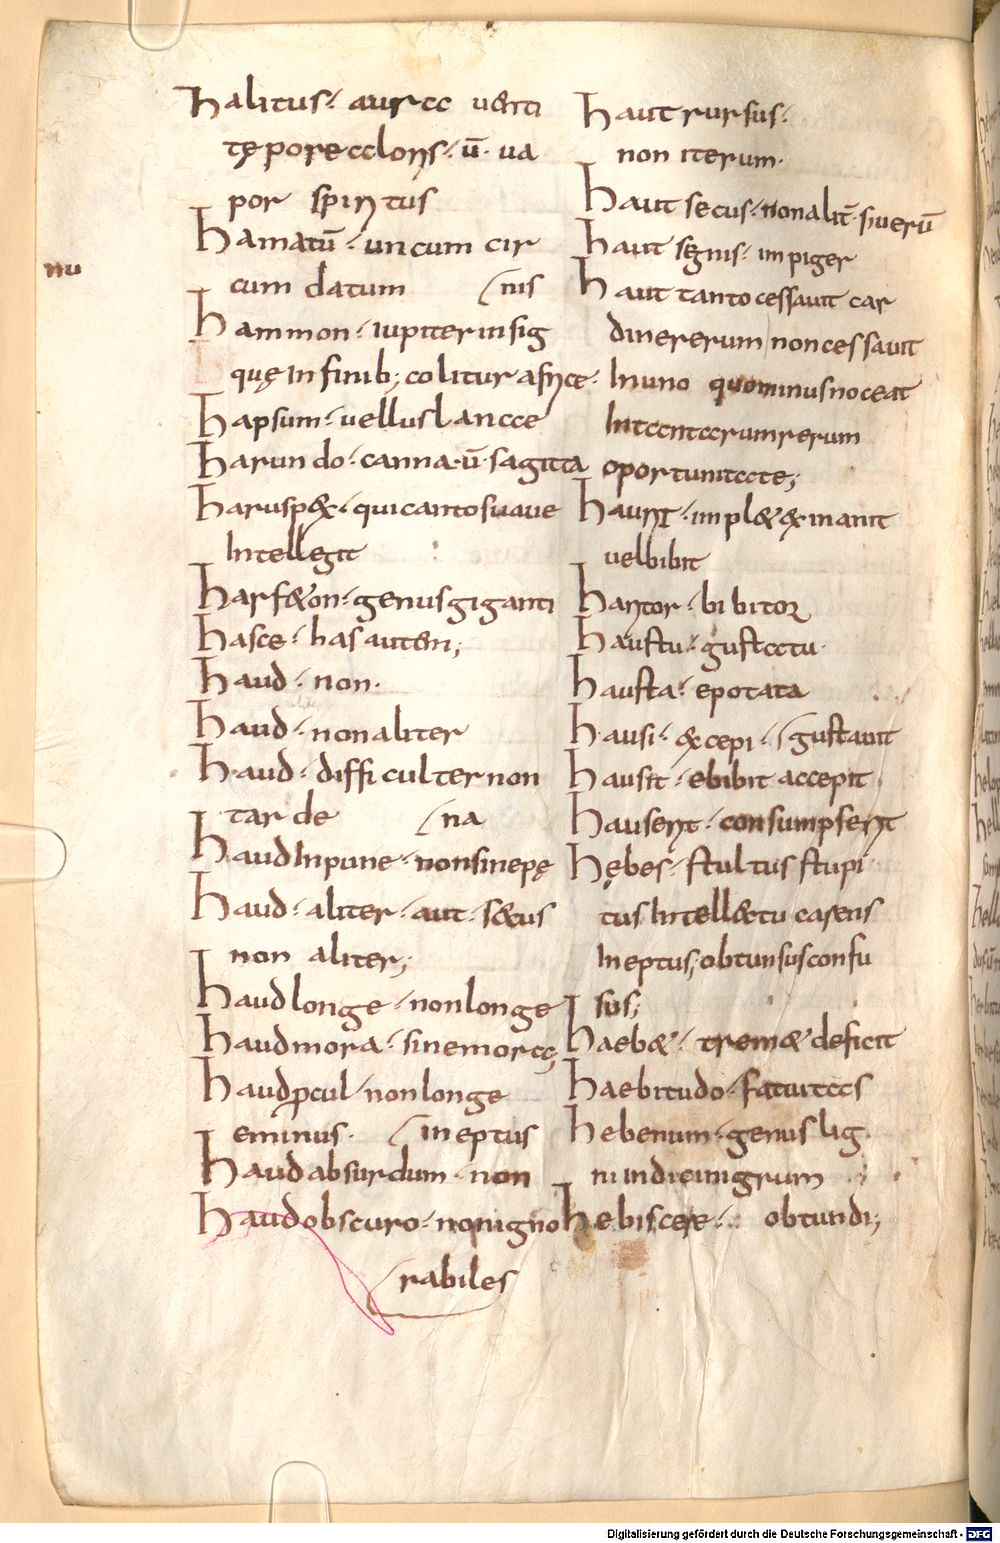 halitus · aurae uenti
tępore caloris · ū · ua
por spiritus
hamatū · uncum cir
nu
cum datum nis
hammon · iupiter insig
quę in finib; colitur africe ·
hapsum · uellus lance
harundo · canna · ū · sagitta
haruspex · qui canto suaue
intellegit
harfeton · genus giganti
hasce · has autem;
haud · non ·
haud · non aliter
haud · difficulter non
tarde na
haud inpune · non sine pę
haud · aliter · aut · secus
non aliter;
haud longe · non longe
haud mora · sine mora;
haud pcul · non longe
eminus · ineptus
haud absurdum · non
haud obscuro · non igno
rabiles
haut rursus ·
non iterum ·
haut secus · non alit̄ · siuerū
haut segnis · impiger
haut tanto cessauit car
dine rerum non cessauit
in uno quominus noceat
in tantarum rerum
oportunitate;
haurit · implet exinanit
uel bibit
haritor · bibitor
haustu · gustatu ·
hausta · epotata
hausi · excepi · gustauit
hausit · ebibit accepit
hauserit · consumpserit
hębes · stultus stupi
tus intellectu carens
ineptus; obtunsus confu
sus;
haebet · tremet deficit
haebitudo · fatuitas
hebenum · genus lig
ni indici nigrum
hebiscere · obtundi;
Digitalisierung gefördert durch die Deutsche Forschungsgemeinschaft - DFG